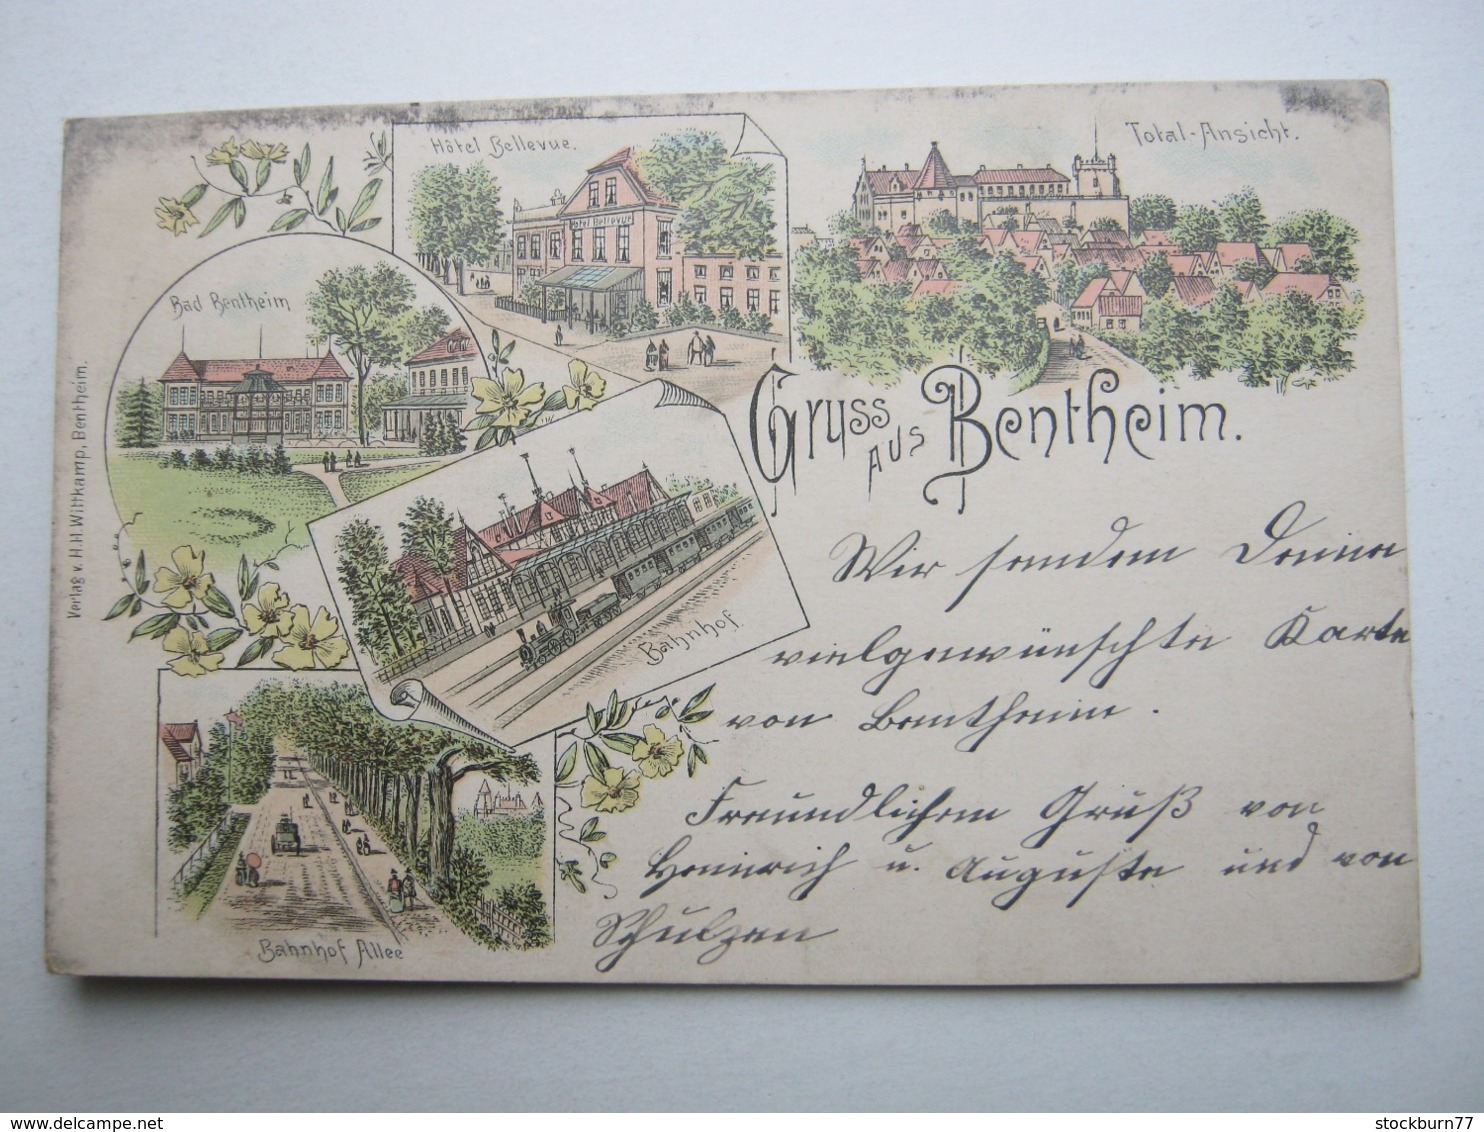 Hôtel Bellevue.
Hotel Bellevue
Total-Ansicht.
Bad Bentheim
Gruss aus Bentheim.
Verlag v. H.H Wittkamp, Bentheim.
Bahnhof.
Bahnhof Allee
Wir senden Deine
vielgewünschte Karte
von Bentheim.
Freundlichen Gruß von
Heinrich u. Auguste und von
Schulzen
delcampe.net
stockburn77